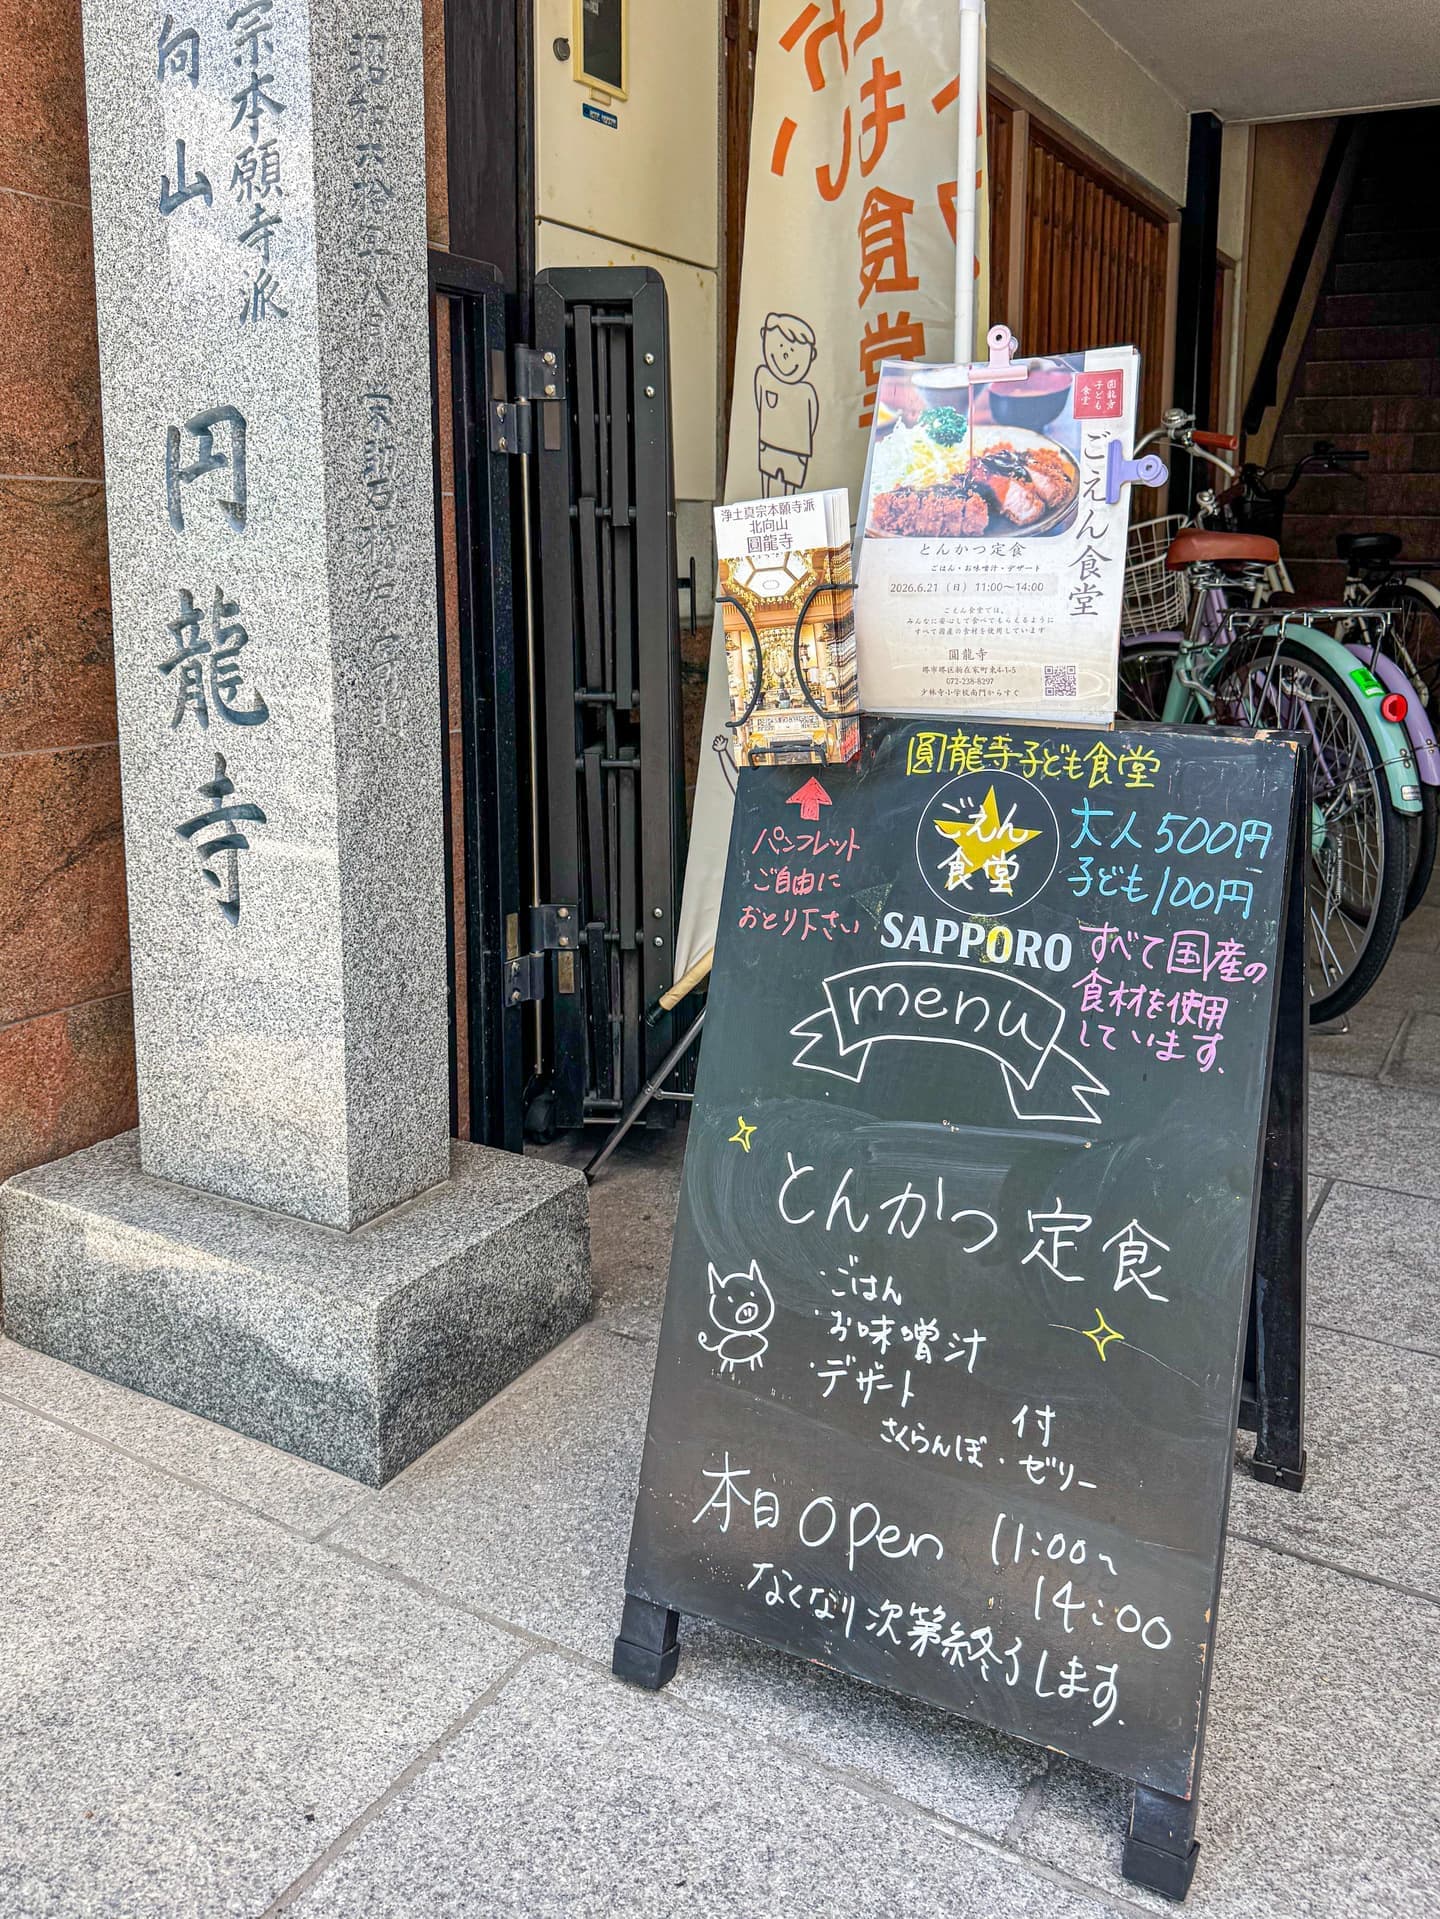 宗本願寺派
向山
円龍寺
昭和六拾五年八月
食堂
浄土真宗本願寺派
北向山
圓龍寺
圓龍寺
子ども
食堂
ごえん食堂
とんかつ定食
ごはん・お味噌汁・デザート
2026.6.21（日）11:00〜14:00
ごえん食堂では、
みんなに安心して食べてもらえるように
すべて国産の食材を使用しています
圓龍寺
堺市堺区新在家町東4-1-5
072-238-8297
少林寺小学校南門からすぐ
圓龍寺子ども食堂
パンフレット
ご自由に
おとり下さい
ごえん
食堂
大人500円
子ども100円
SAPPORO
すべて国産の
食材を使用
しています。
menu
とんかつ定食
・ごはん
・お味噌汁
・デザート
付
さくらんぼ・ゼリー
本日open 11:00〜
14:00
なくなり次第終了します。